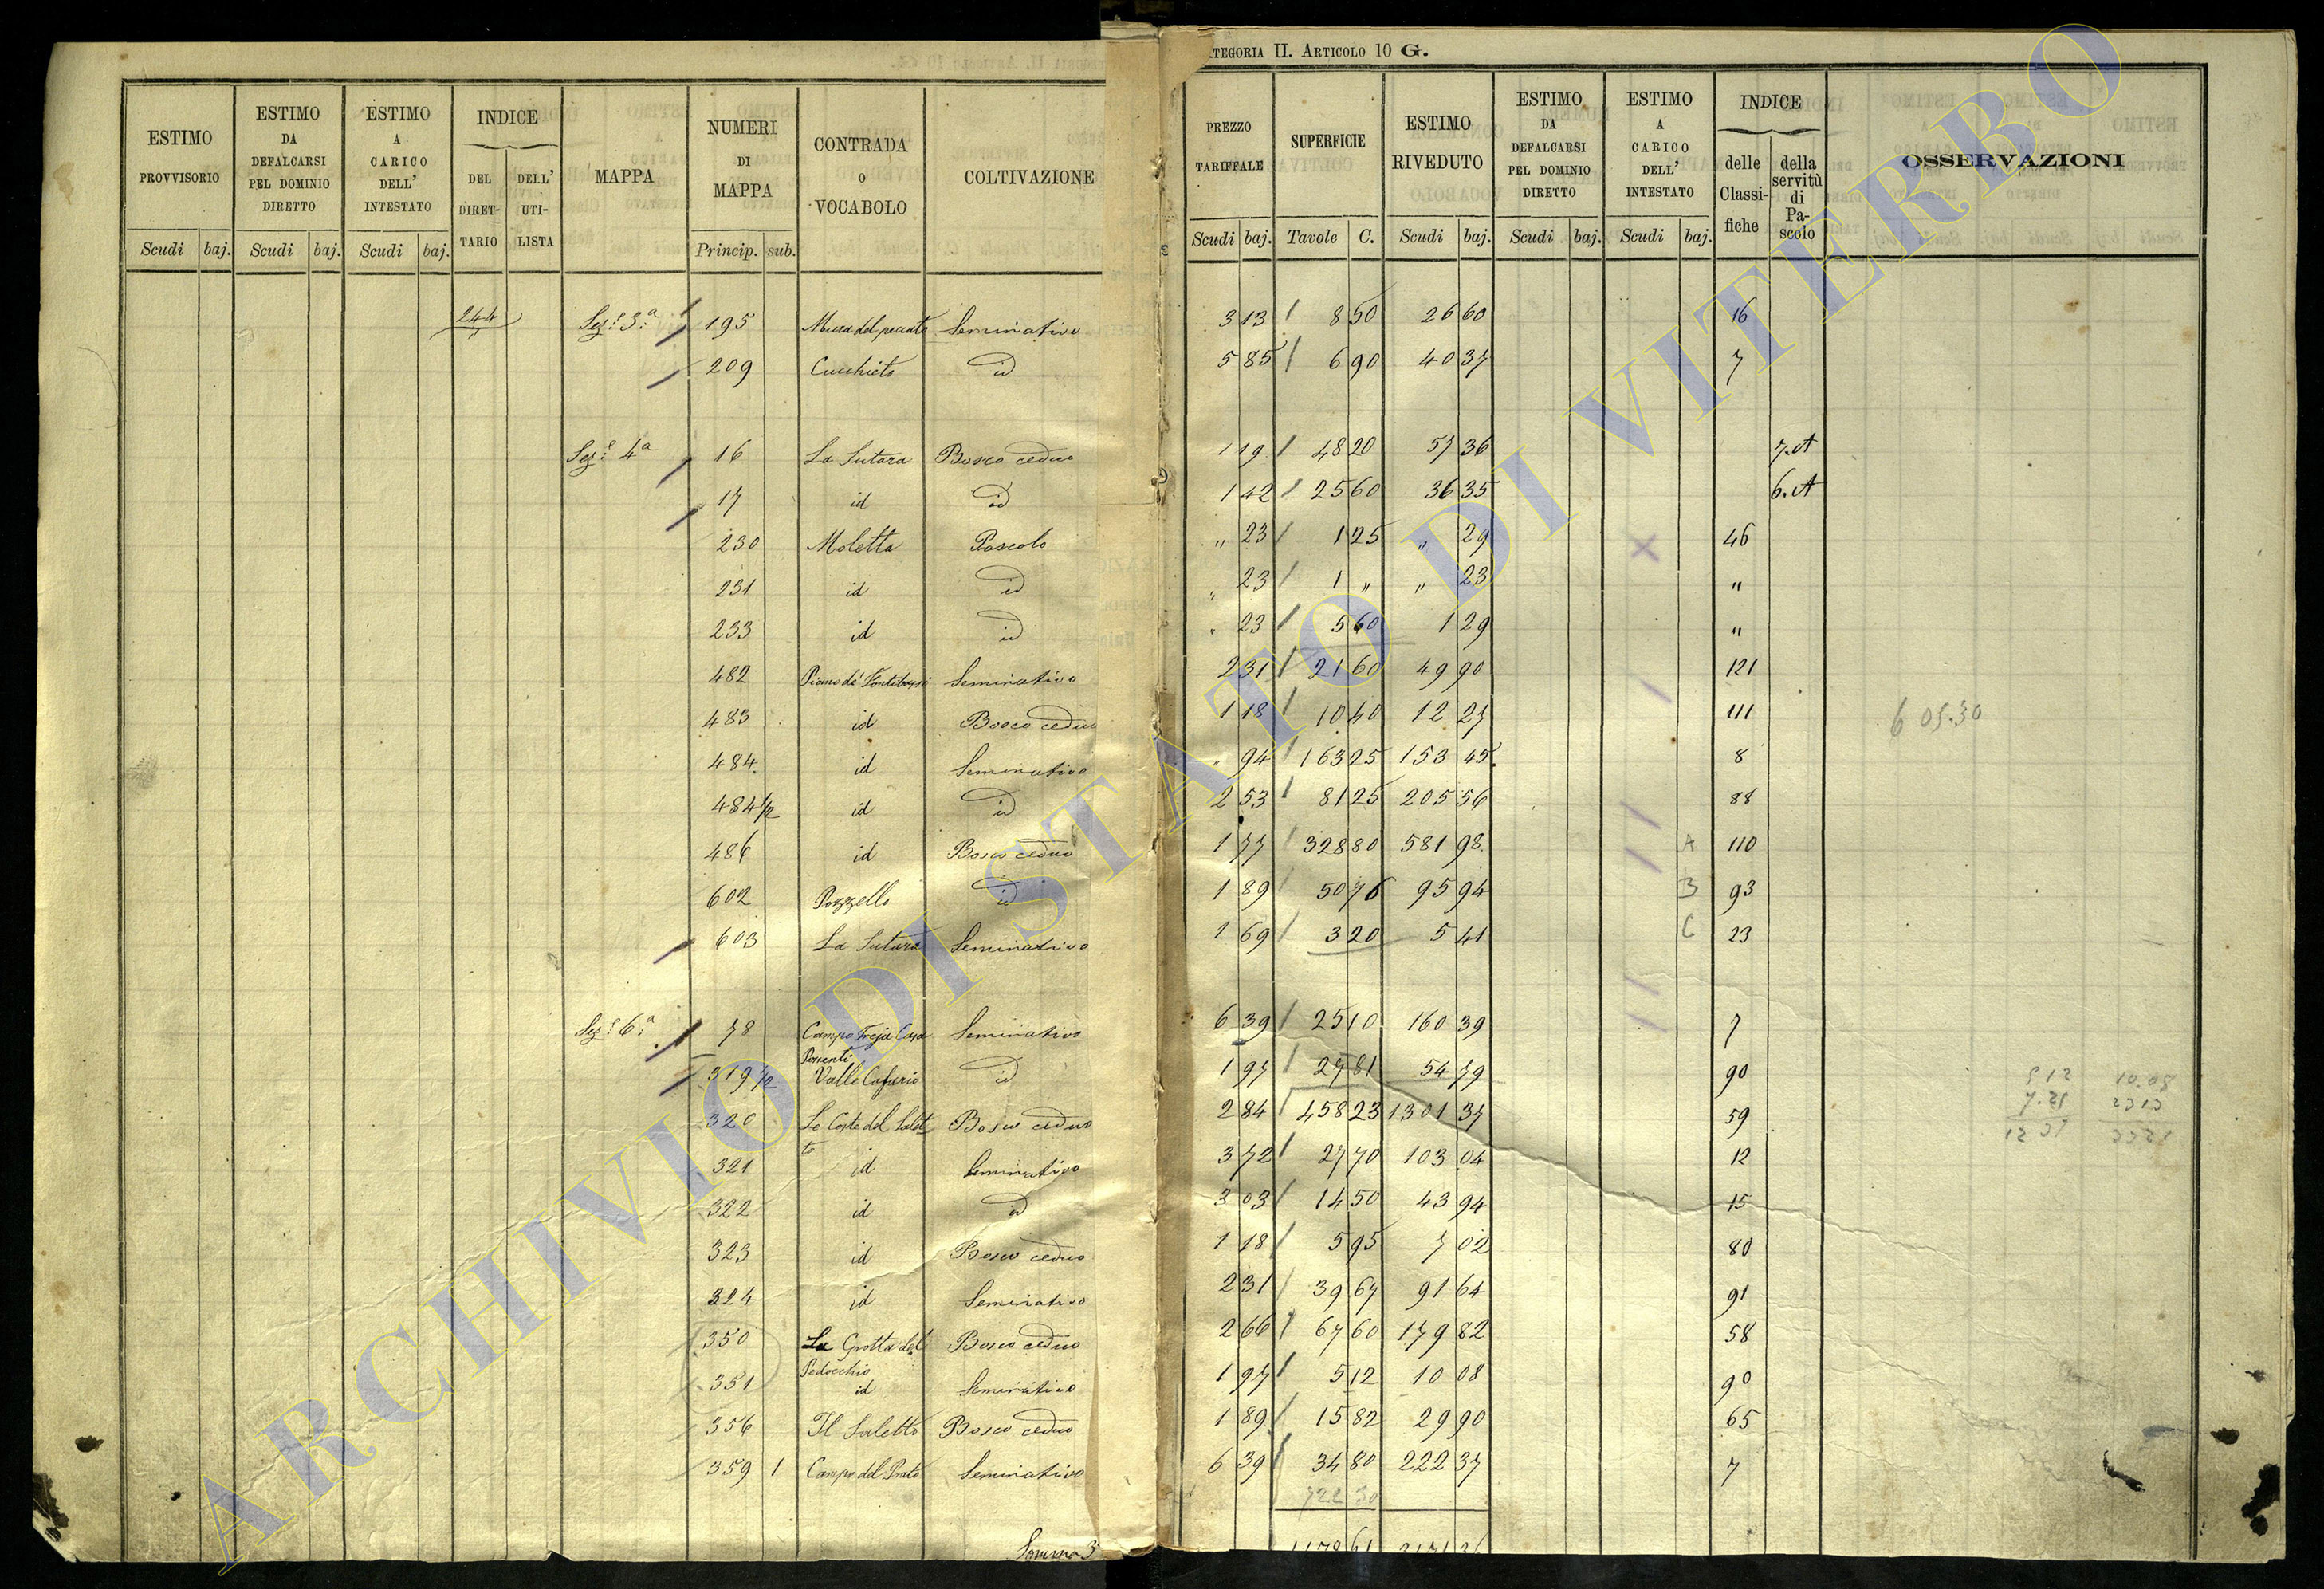 CATEGORIA II. ARTICOLO 10 G.
ESTIMO PROVVISORIO | ESTIMO DA DEFALCARSI PEL DOMINIO DIRETTO | ESTIMO A CARICO DELL' INTESTATO | INDICE DEL DIRETTARIO | DELL' UTILISTA | MAPPA | NUMERI DI MAPPA | CONTRADA O VOCABOLO | COLTIVAZIONE | PREZZO TARIFFALE | SUPERFICIE | ESTIMO RIVEDUTO | ESTIMO DA DEFALCARSI PEL DOMINIO DIRETTO | ESTIMO A CARICO DELL' INTESTATO | INDICE delle Classifiche | della servitù di Pascolo | OSSERVAZIONI
Scudi baj. | Scudi baj. | Scudi baj. | Princip. sub. | Scudi baj. | Tavole C. | Scudi baj. | Scudi baj. | Scudi baj.
244 Sez.e 3.a 195 Seminativo 3 13 8 50 26 60 16
209 Cucchieto id 5 85 6 90 40 37 7
Sez.e 4a 16 La Sutara Bosco ceduo 1 19 48 20 57 36 7.A
17 id id 1 42 25 60 36 35 6.A
230 Moletta Pascolo " 23 1 25 " 29 46
231 id id " 23 1 " " 23 "
233 id id " 23 5 60 1 29 "
482 Seminativo 2 31 21 60 49 90 121
483 id Bosco ceduo 1 18 10 40 12 27 111
6 05.30
484 id Seminativo " 94 163 25 153 45 8
484 1/2 id id 2 53 81 25 205 56 88
486 id Bosco ceduo 1 77 328 80 581 98 A 110
602 Pozzello id 1 89 50 76 95 94 B 93
603 La Sutara Seminativo 1 69 3 20 5 41 C 23
Sez.e 6.a 78 Campo Seminativo 6 39 25 10 160 39 7
319 1/2 Valle id 1 97 27 81 54 79 90
320 Le Coste del Saletto Bosco ceduo 2 84 458 23 1301 37 59
321 id Seminativo 3 72 27 70 103 04 12
322 id id 3 03 14 50 43 94 15
323 id Bosco ceduo 1 18 5 95 7 02 80
324 id Seminativo 2 31 39 67 91 64 91
350 La Grotta del Pedocchio Bosco ceduo 2 66 67 60 179 82 58
351 id Seminativo 1 97 5 12 10 08 90
356 Il Saletto Bosco ceduo 1 89 15 82 29 90 65
359 1 Campo del Prato Seminativo 6 39 34 80 222 37 7
722 30
Somma
ARCHIVIO DI STATO DI VITERBO